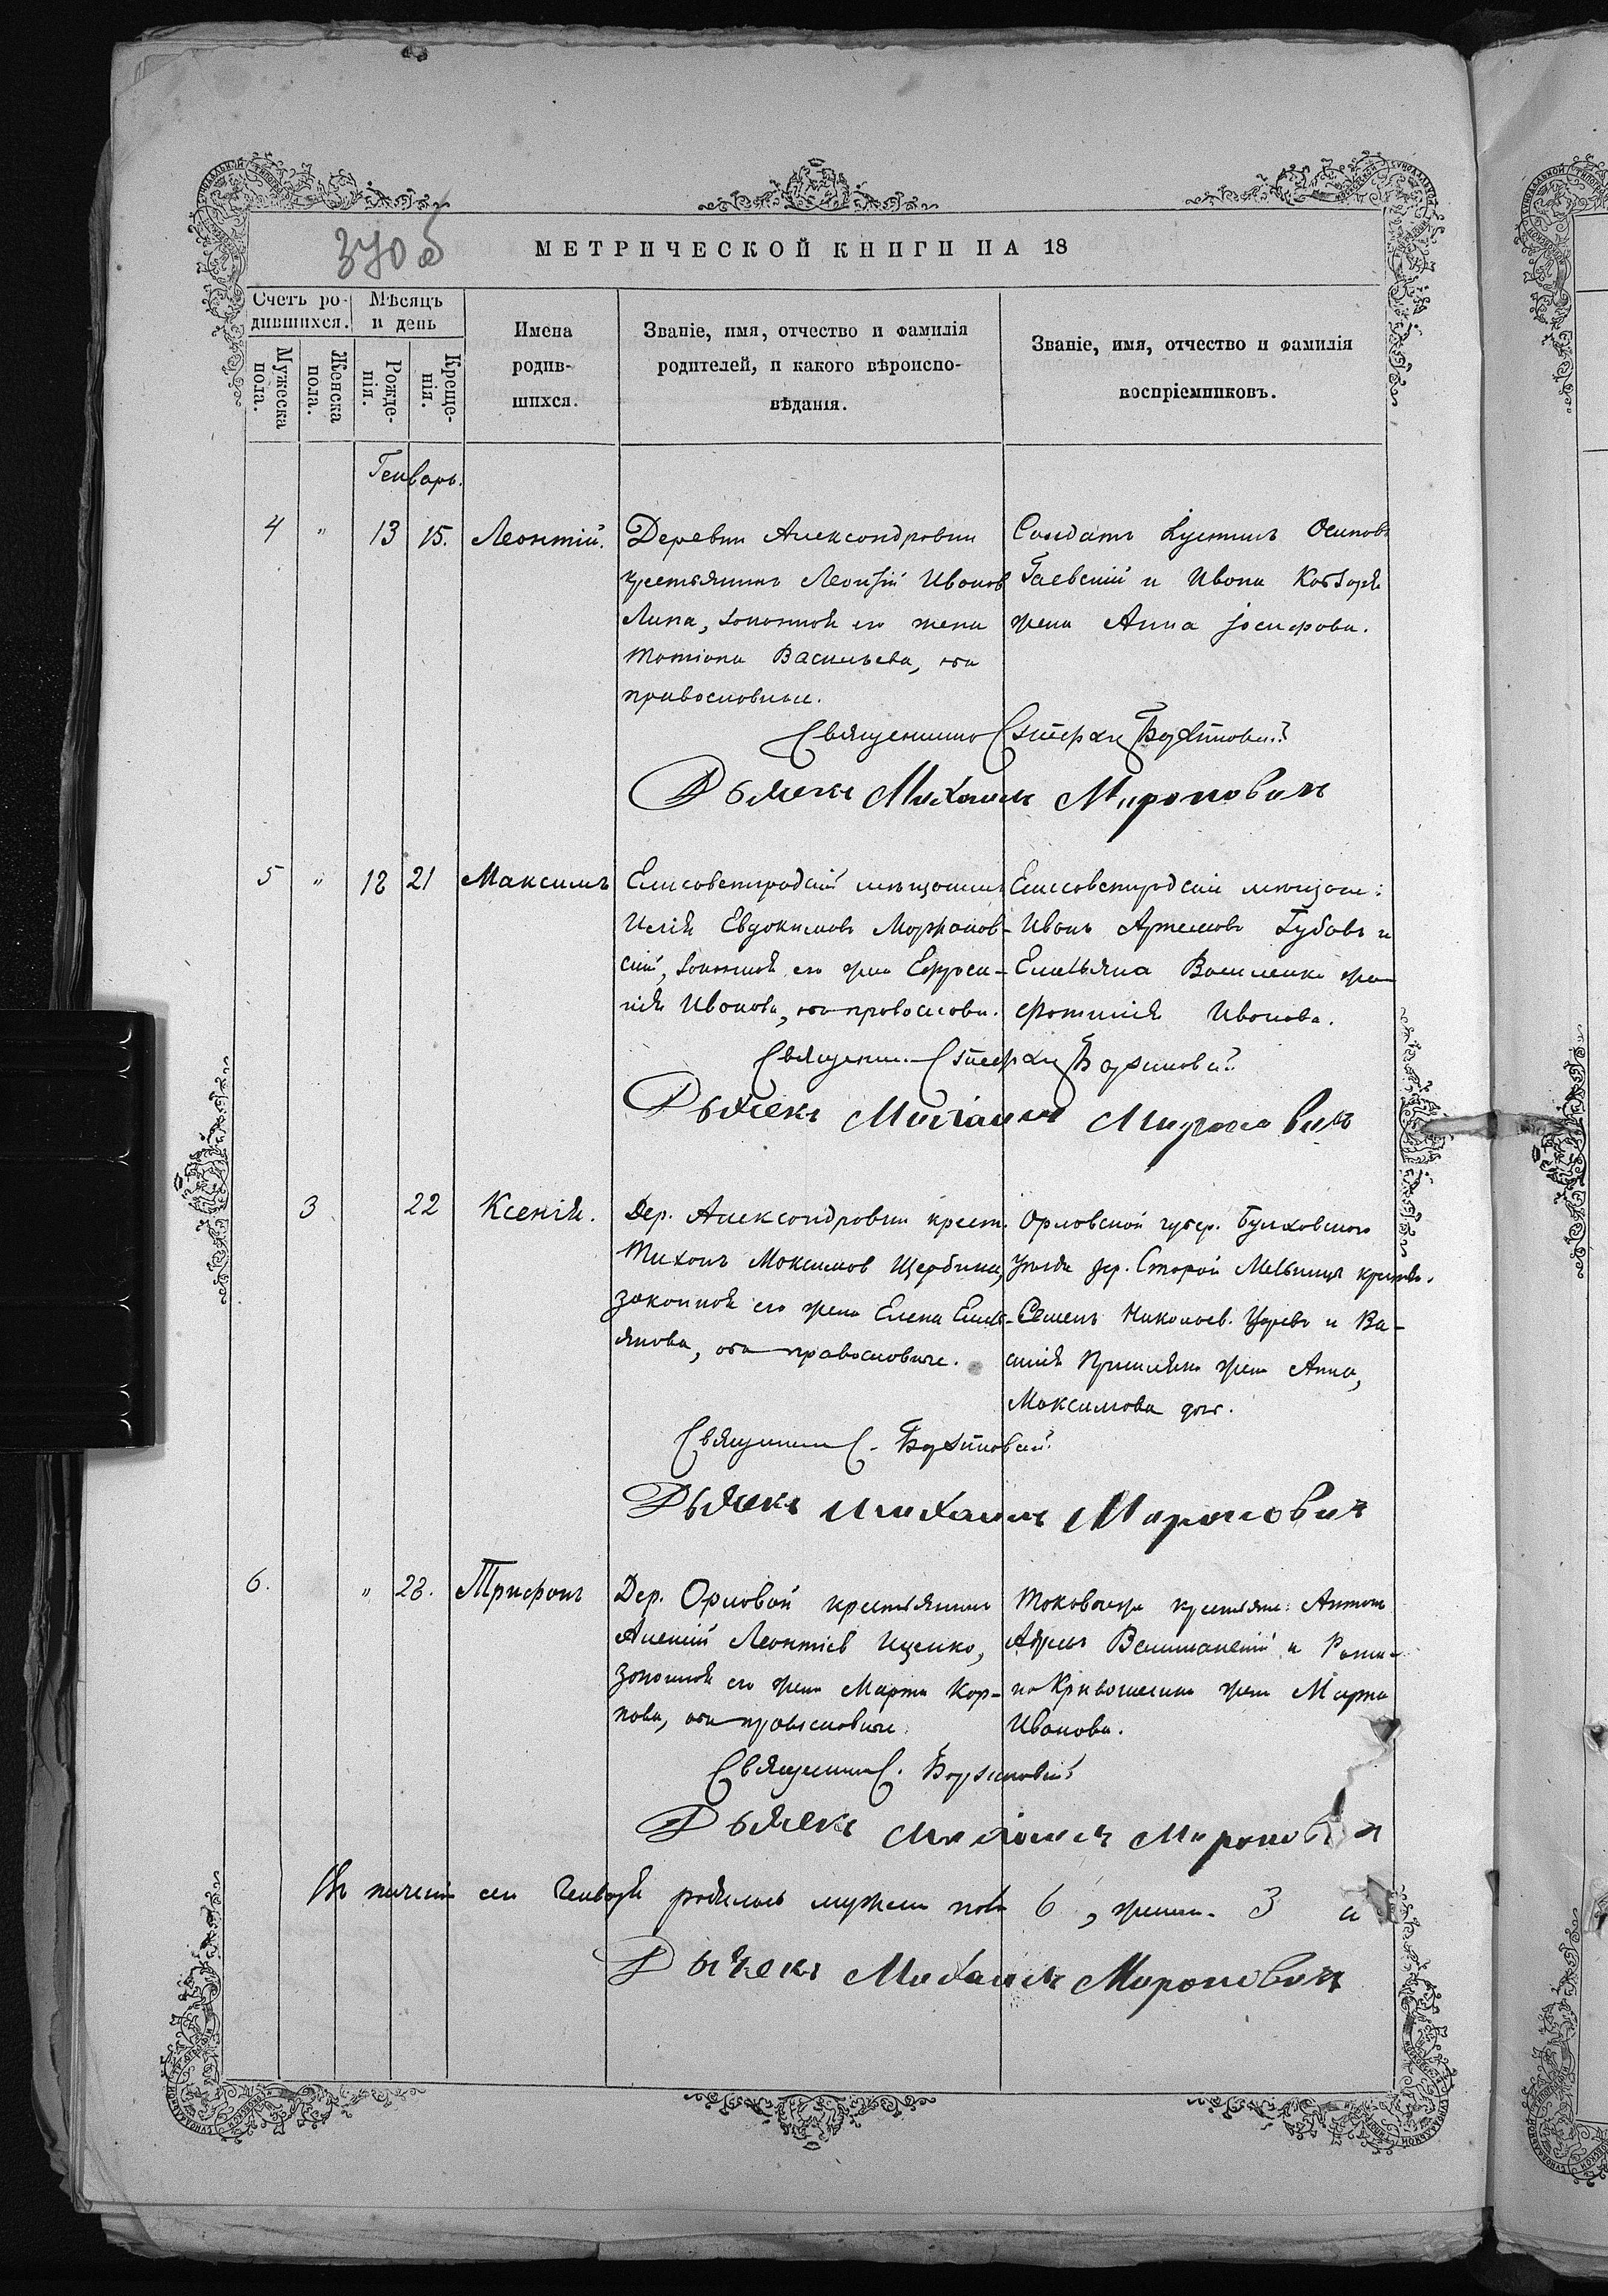 370 б
МЕТРИЧЕСКОЙ КНИГИ НА 18
Счетъ ро-
дившихся.
Мѣсяцъ
и день
Мужеска
пола.
Женска
пола.
Рожде-
нія.
Креще-
нія.
Имена
родив-
шихся.
Званіе, имя, отчество и фамилія
родителей, и какого вѣроиспо-
вѣданія.
Званіе, имя, отчество и фамилія
воспріемниковъ.
Генварь.
4 " 13 15. Леонтій.
Деревни Александровки
крестьянинъ Леонтій Ивановъ
Липа, законная его жена
Татіана Васильева, оба
православные.
Солдатъ Іустинъ Осиповъ
Гаевскій и Ивана Кобзаря
жена Анна Іосифова.
Священникъ
Дьячекъ Михаилъ Мироновичъ
5 " 18 21 Максимъ
Елисаветградскій мѣщанинъ
Илія Евдокимовъ Моржанов-
скій, законная его жена Ефроси-
нія Иванова, оба православн.
Елисаветградскій мѣщан:
Иванъ Артемовъ Губавъ и
Емельяна Василенка жена
Фотинія Иванова.
Священн.
Дьячекъ Михаилъ Мироновичъ
3 22 Ксенія.
Дер. Александровки крест.
Тихонъ Максимовъ Щербина,
законная его жена Елена Емель-
янова, оба православные.
Орловской губер. Булховскаго
уѣзда дер. Старой Мельницы крестьян.
Семенъ Николаев. Царевъ и Ва-
силія жена Анна,
Максимова доч.
Священникъ С.
Дьячекъ Михаилъ Мироновичъ
6. " 23. Трифонъ
Дер. Орловой крестьянинъ
Алексій Леонтіевъ Ищенко,
законная его жена Марта Кар-
пова, оба православные.
крестьян: Антонъ
и Рома-
на Кривошеина жена Марта
Иванова.
Священникъ С.
Дьячекъ Михаилъ Мироновичъ
Въ теченіи сего Генваря родилось мужеск. пола 6, женск. 3 и
Дьячекъ Михаилъ Мироновичъ